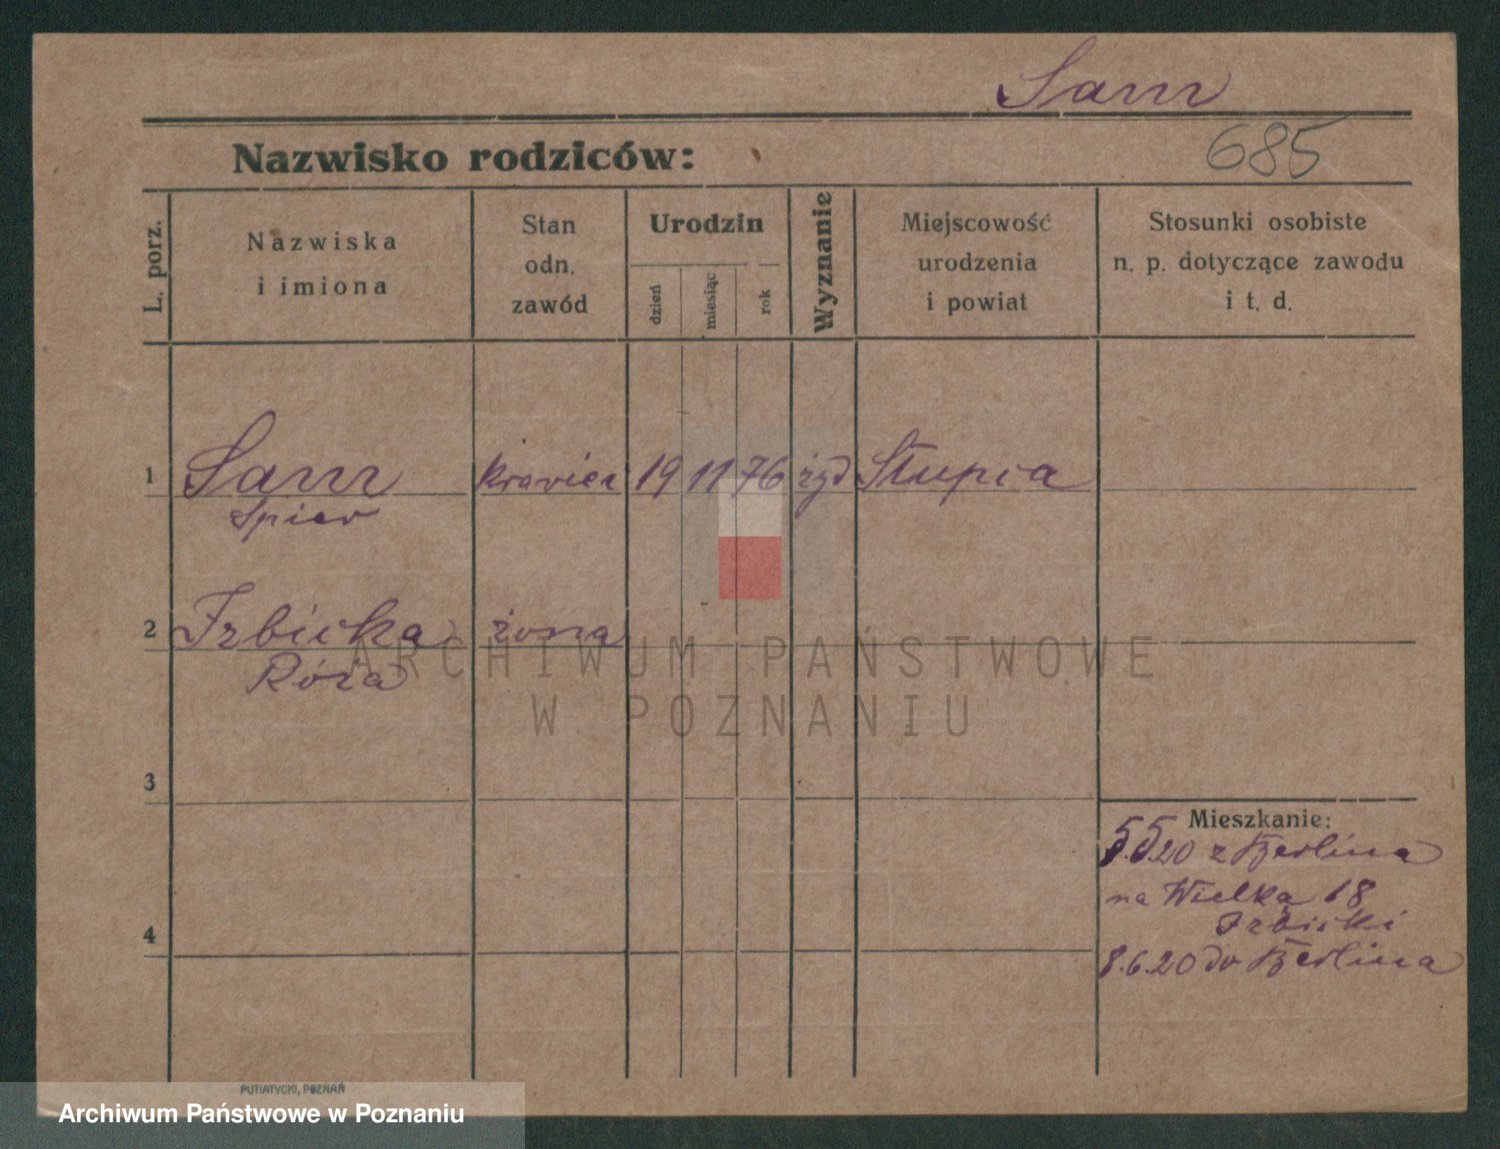 Sam
685
Nazwisko rodziców:
L. porz.
Nazwiska
i imiona
Stan
odn.
zawód
Urodzin
dzień
miesiąc
rok
Wyznanie
Miejscowość
urodzenia
i powiat
Stosunki osobiste
n. p. dotyczące zawodu
i t. d.
1 Sam krawiec 19 11 76 żyd Słupia
2 Izbicka żona
Róża
3
Mieszkanie:
5.5.20 z Berlina
na Wielką 18
Izbicki
8.6.20 do Berlina
4
PUTIATYCKI, POZNAŃ
ARCHIWUM PAŃSTWOWE
W POZNANIU
Archiwum Państwowe w Poznaniu